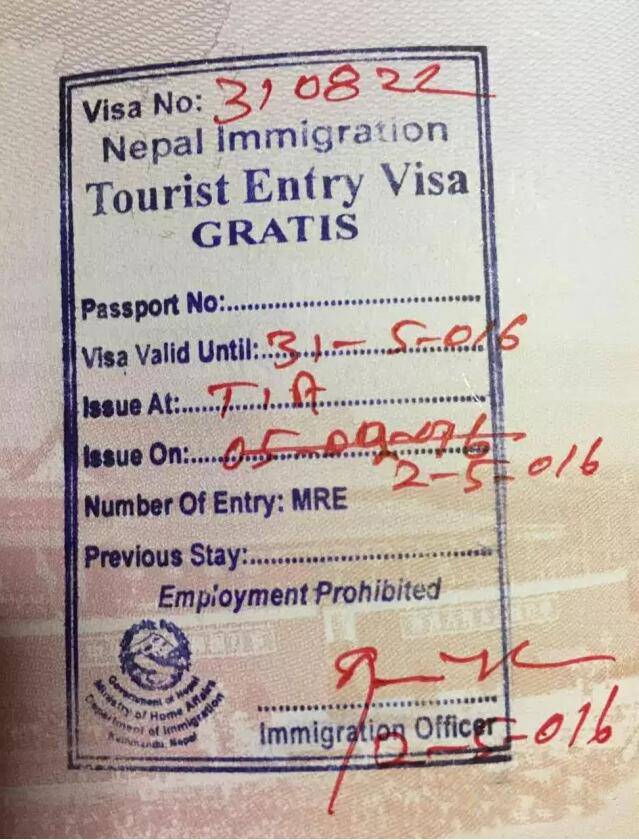 Visa No: 310822
Nepal Immigration
Tourist Entry Visa
GRATIS
Passport No:
Visa Valid Until: 31-5-016
Issue At: TIA
Issue On:
2-5-016
Number Of Entry: MRE
Previous Stay:
Employment Prohibited
Government of Nepal
Ministry of Home Affairs
Department of Immigration
Kathmandu, Nepal
Immigration Officer
2-5-016